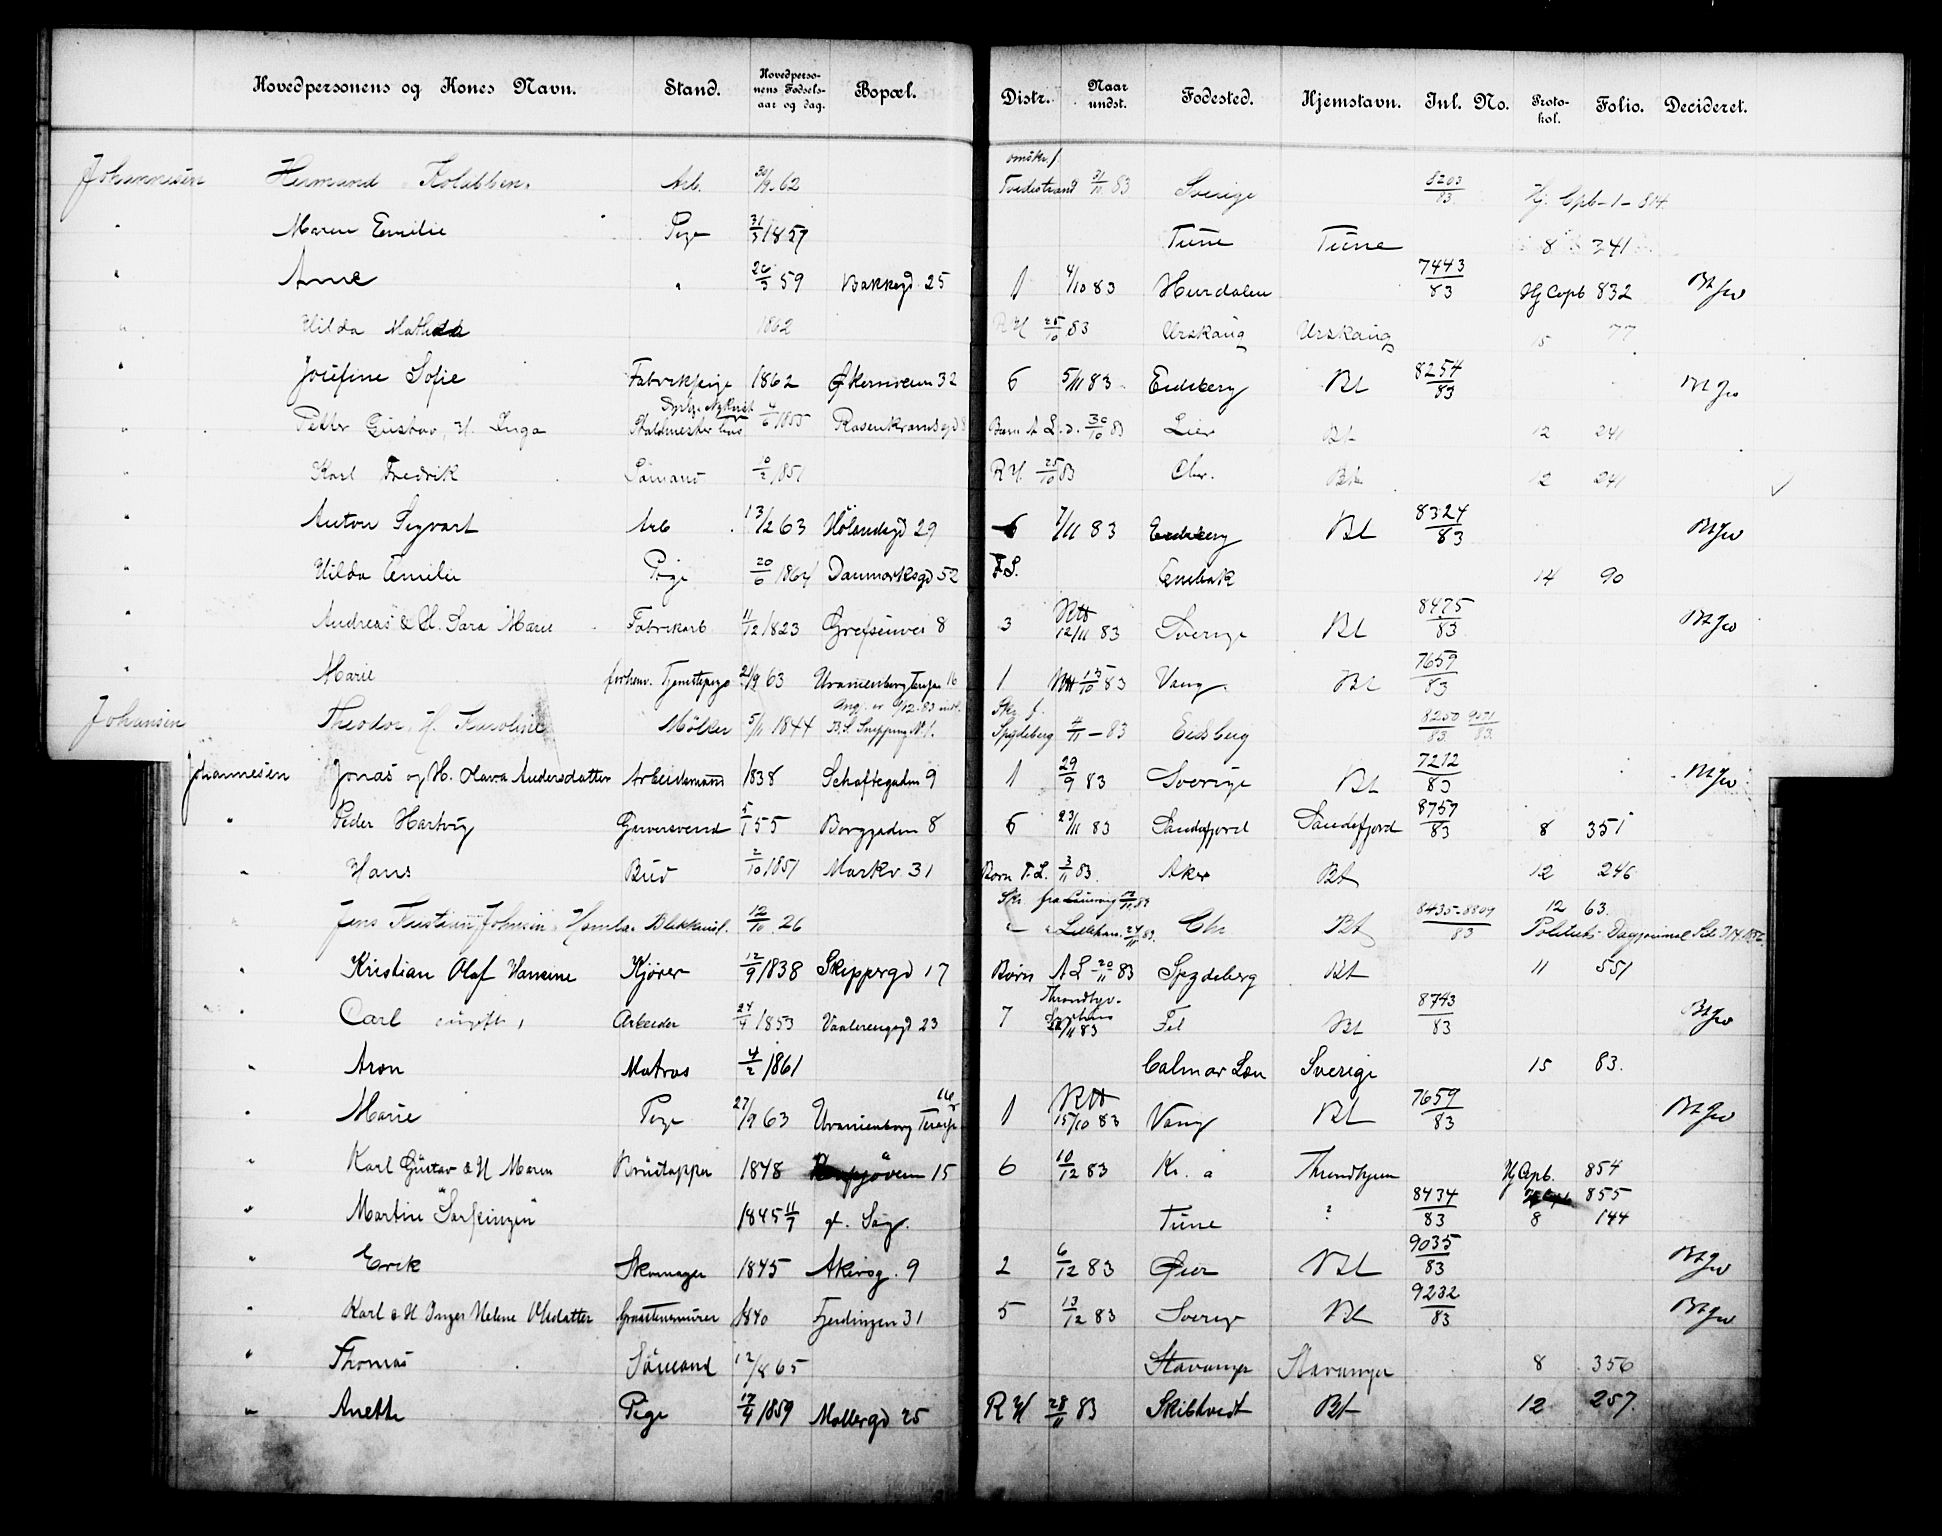 Hovedpersonens og Kones Navn. Stand. Hovedpersonens Fødselsaar og dag. Bopæl. Distr. Naar undst. Fødested. Hjemstavn. Inl. No. Protokol. Folio. Decideret.
Johannesen Hermand Arb. 30/9 62 omskr. f. Tvedestrand 83 Sverige 8203/83 Hj. Cpb-1-814
" Maren Emilie Pige 31/3 1857 Tune Tune 8 341
" Arne " 26/3 59 Bakkegd 25 1 4/10 83 Hurdalen 7443/83 Hj Copb 832
" Hilda 1862 R H 25/10 83 Urskoug Urskoug 15 77
" Josefine Sofie Fabrikpige 1862 Økernveien 32 6 5/11 83 Eidsberg Bt 8254/83
" Petter Gustav, H. Inga Staldmester 4/6 1855 Rosenkrandsgd Børn A L. d. 30/10 83 Lier Bt 12 241
" Karl Fredrik Sömand 10/2 1851 R H 25/10 83 Chr. Bt 12 241
" Anton Sigvart Arb 13/12 63 Hölandsgd 29 6 7/11 83 Eidsberg Bt 8324/83
" Hilda Emilie Pige 20/6 1864 Danmarksgd 52 F.S. Enebak 14 90
" Andreas & H. Sara Marie Fabrikarb 11/12 1823 Grefsenvei 8 3 12/11 83 Sverige Bt 8475/83
" Marie forhenv. Tjenestepige 63 Uranienborg Terasse 16 1 15/10 83 Vang Bt 7659/83
Johansen Theodor, H. Karoline Møller 5/11 1844 Skr. f. Spydeberg 4/11-83 Eidsberg 8250/83 9071/83
Johannesen Jonas og H. Olava Andersdatter Arbeidsmand 1838 Schaftegaden 9 1 29/9 83 Sverige Bt 7212/83
" Peder Hartvig Garversvend 5/1 55 Borggaden 8 6 23/11 83 Sandefjord Sandefjord 8757/83 8 351
" Hans Bud 2/10 1851 Markv. 31 Børn F.L. 3/11 83 Aker Bt 12 246
" Jens Kristian Blikkensl. 12/10 26 Skr. fra Lilleham. 24/11 83 Chr Bt 8435-8809/83 12 63.
" Kristian Olaf Hansine Kjører 12/9 1838 Skippergd 17 Børn A L 20/11 83 Spydeberg Bt 11 551
" Carl ugift, Arbeider 24/4 1853 Vaalerenggd 23 7 83 Fet Bt 8743/83
" Aron Matros 4/2 1861 Calmar Len Sverige 15 83.
" Marie Pige 27/9 63 Uranienborg Terasse 16 1 15/10 83 Vang Bt 7659/83
" Karl Gustav & H Maren 1848 15 6 10/12 83 Kr. a Throndhjem Hj Cpb. 854
855
" Martin "Sarpingen" 1845 11/7 gl. Sag. Tune ? 8434/83 8 144
" Erik Skomager 1845 Akersg. 9 2 6/12 83 Øier Bt 9035/83
" Karl & H Inger Helene Olsdatter Graastensmurer 1840 Fjerdingen 31 5 13/12 83 Sverig Bt 9232/83
" Thomas Sömand 12/8 65 Stavanger Stavanger 8 356
" Anette Pige 17/4 1859 Møllergd 25 R H 28/11 83 Skibtvedt Bt 12 257.